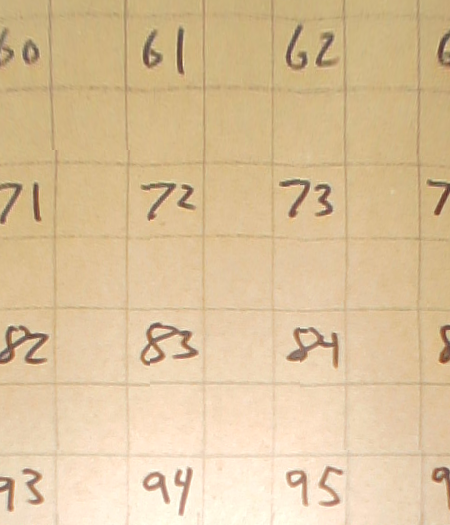 60 61 62 6
71 72 73 7
82 83 84 8
93 94 95 9